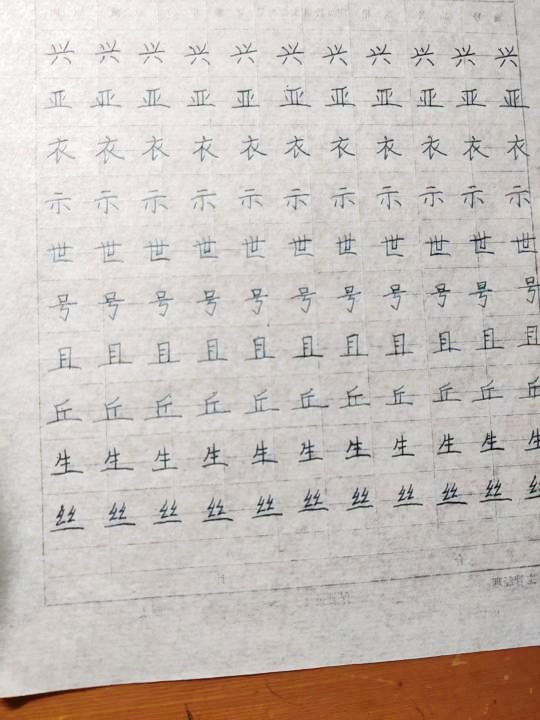 兴兴兴兴兴兴兴兴兴兴兴
亚亚亚亚亚亚亚亚亚亚亚
衣衣衣衣衣衣衣衣衣衣衣
示示示示示示示示示示示
世世世世世世世世世世世
号号号号号号号号号号号
且且且且且且且且且且且
丘丘丘丘丘丘丘丘丘丘丘
生生生生生生生生生生生
丝丝丝丝丝丝丝丝丝丝丝